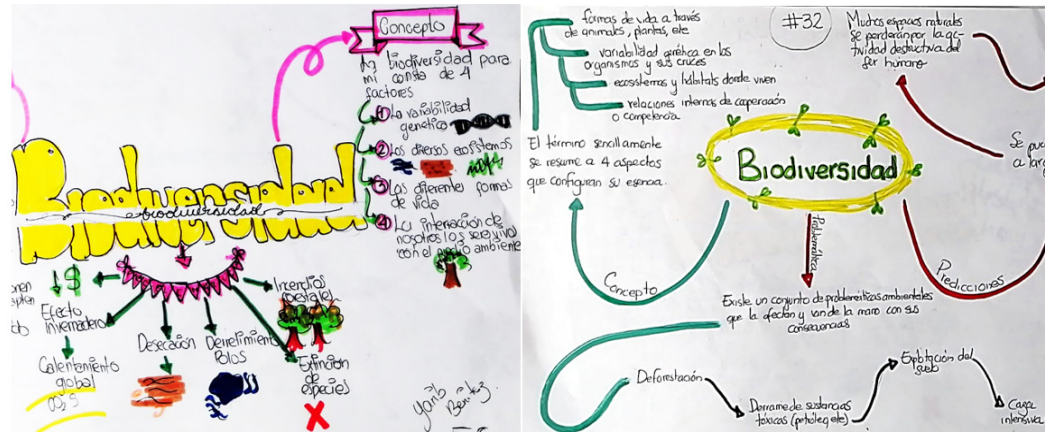 Concepto
La biodiversidad para
mi consta de 4
factores
① La variabilidad
genética
② Los diversos ecosistemas
③ Las diferentes formas
de vida
④ La interacción de
nosotros los seres vivos
con el medio ambiente
Biodiversidad
biodiversidad
$
Efecto
Invernadero
Calentamiento
global
Desecación
Derretimiento
Polos
Incendios
forestales
Extinción
de
especies
Yarib
Benitez
#32
formas de vida a través
de animales, plantas, etc
variabilidad genética en los
organismos y sus cruces
ecosistemas y hábitats donde viven
relaciones internas de cooperación
o competencia
El término sencillamente
se resume a 4 aspectos
que configuran su esencia.
Concepto
Biodiversidad
Muchos espacios naturales
se perderán por la ac-
tividad destructiva del
ser humano
Se pue
a larg
Predicciones
Problemática
Existe un conjunto de problemáticas ambientales
que la afectan y van de la mano con sus
consecuencias
Deforestación
Derrame de sustancias
tóxicas (petróleo, etc)
Explotación del
suelo
Caza
intensiva